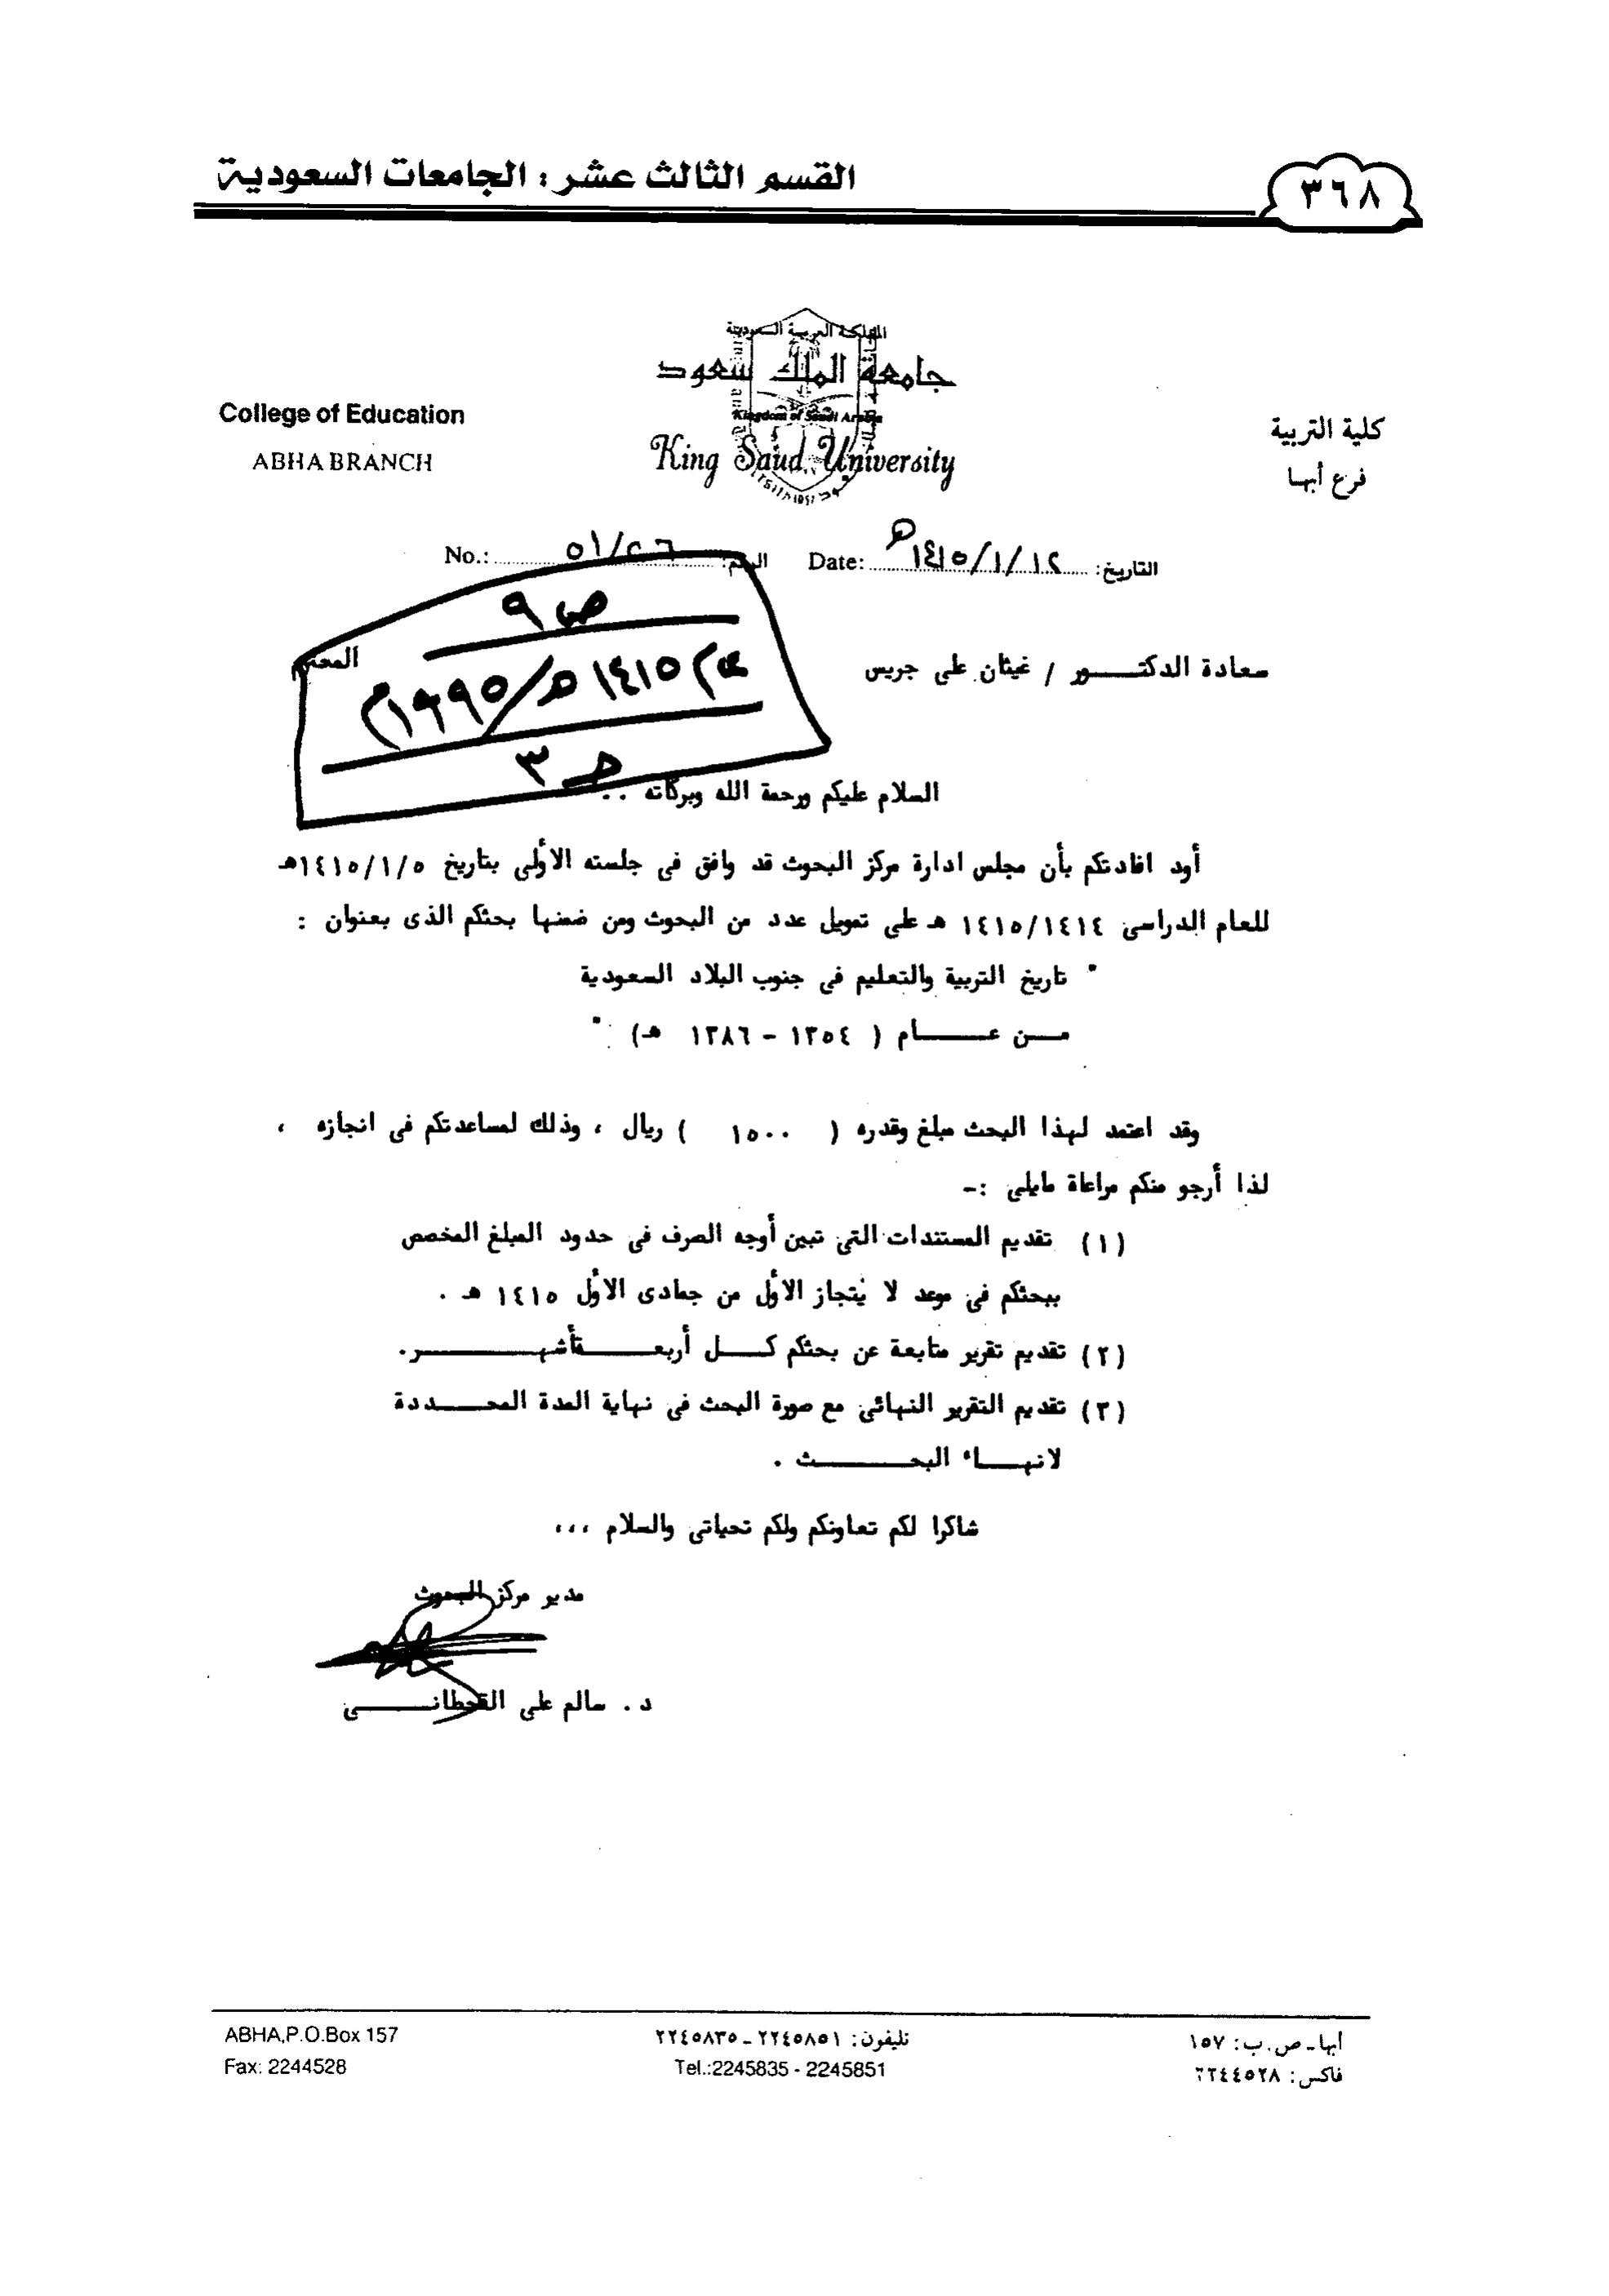 القسم الثالث عشر: الجامعات السعودية
٣٦٨
المملكة العربية السعودية
جامعة الملك سعود
Kingdom of Saudi Arabia
King Saud University
College of Education
ABHA BRANCH
كلية التربية
فرع أبها
التاريخ: ١٤١٥/١/١٢هـ Date:
الرقم: No.:
ص ٩
عام ١٤١٥هـ/١٩٩٥م
حـ ٣
سعادة الدكتـــور / غيثان على جريس المحترم
السلام عليكم ورحمة الله وبركاته ..
أود افادتكم بأن مجلس ادارة مركز البحوث قد وافق فى جلسته الأولى بتاريخ ١٤١٥/١/٥هـ
للعام الدراسى ١٤١٥/١٤١٤ هـ على تمويل عدد من البحوث ومن ضمنها بحثكم الذى بعنوان :
" تاريخ التربية والتعليم فى جنوب البلاد السعودية
مــن عـــــام ( ١٣٥٤ - ١٣٨٦ هـ) "
وقد اعتمد لهذا البحث مبلغ وقدره ( ١٥٠٠ ) ريال ، وذلك لمساعدتكم فى انجازه ،
لذا أرجو منكم مراعاة مايلى :-
(١) تقديم المستندات التى تبين أوجه الصرف فى حدود المبلغ المخصص
ببحثكم فى موعد لا يتجاز الأول من جمادى الأول ١٤١٥ هـ .
(٢) تقديم تقرير متابعة عن بحثكم كـــل أربعــــة أشهــــــــر.
(٣) تقديم التقرير النهائى مع صورة البحث فى نهاية المدة المحـــددة
لانهـــاء البحــــــــث .
شاكرا لكم تعاونكم ولكم تحياتى والسلام ،،،
مدير مركز البحوث
د . سالم على القحطانـــــى
ABHA,P.O.Box 157
Fax: 2244528
تليفون: ٢٢٤٥٨٥١ ـ ٢٢٤٥٨٣٥
Tel.:2245835 - 2245851
أبها ـ ص . ب : ١٥٧
فاكس: ٢٢٤٤٥٢٨